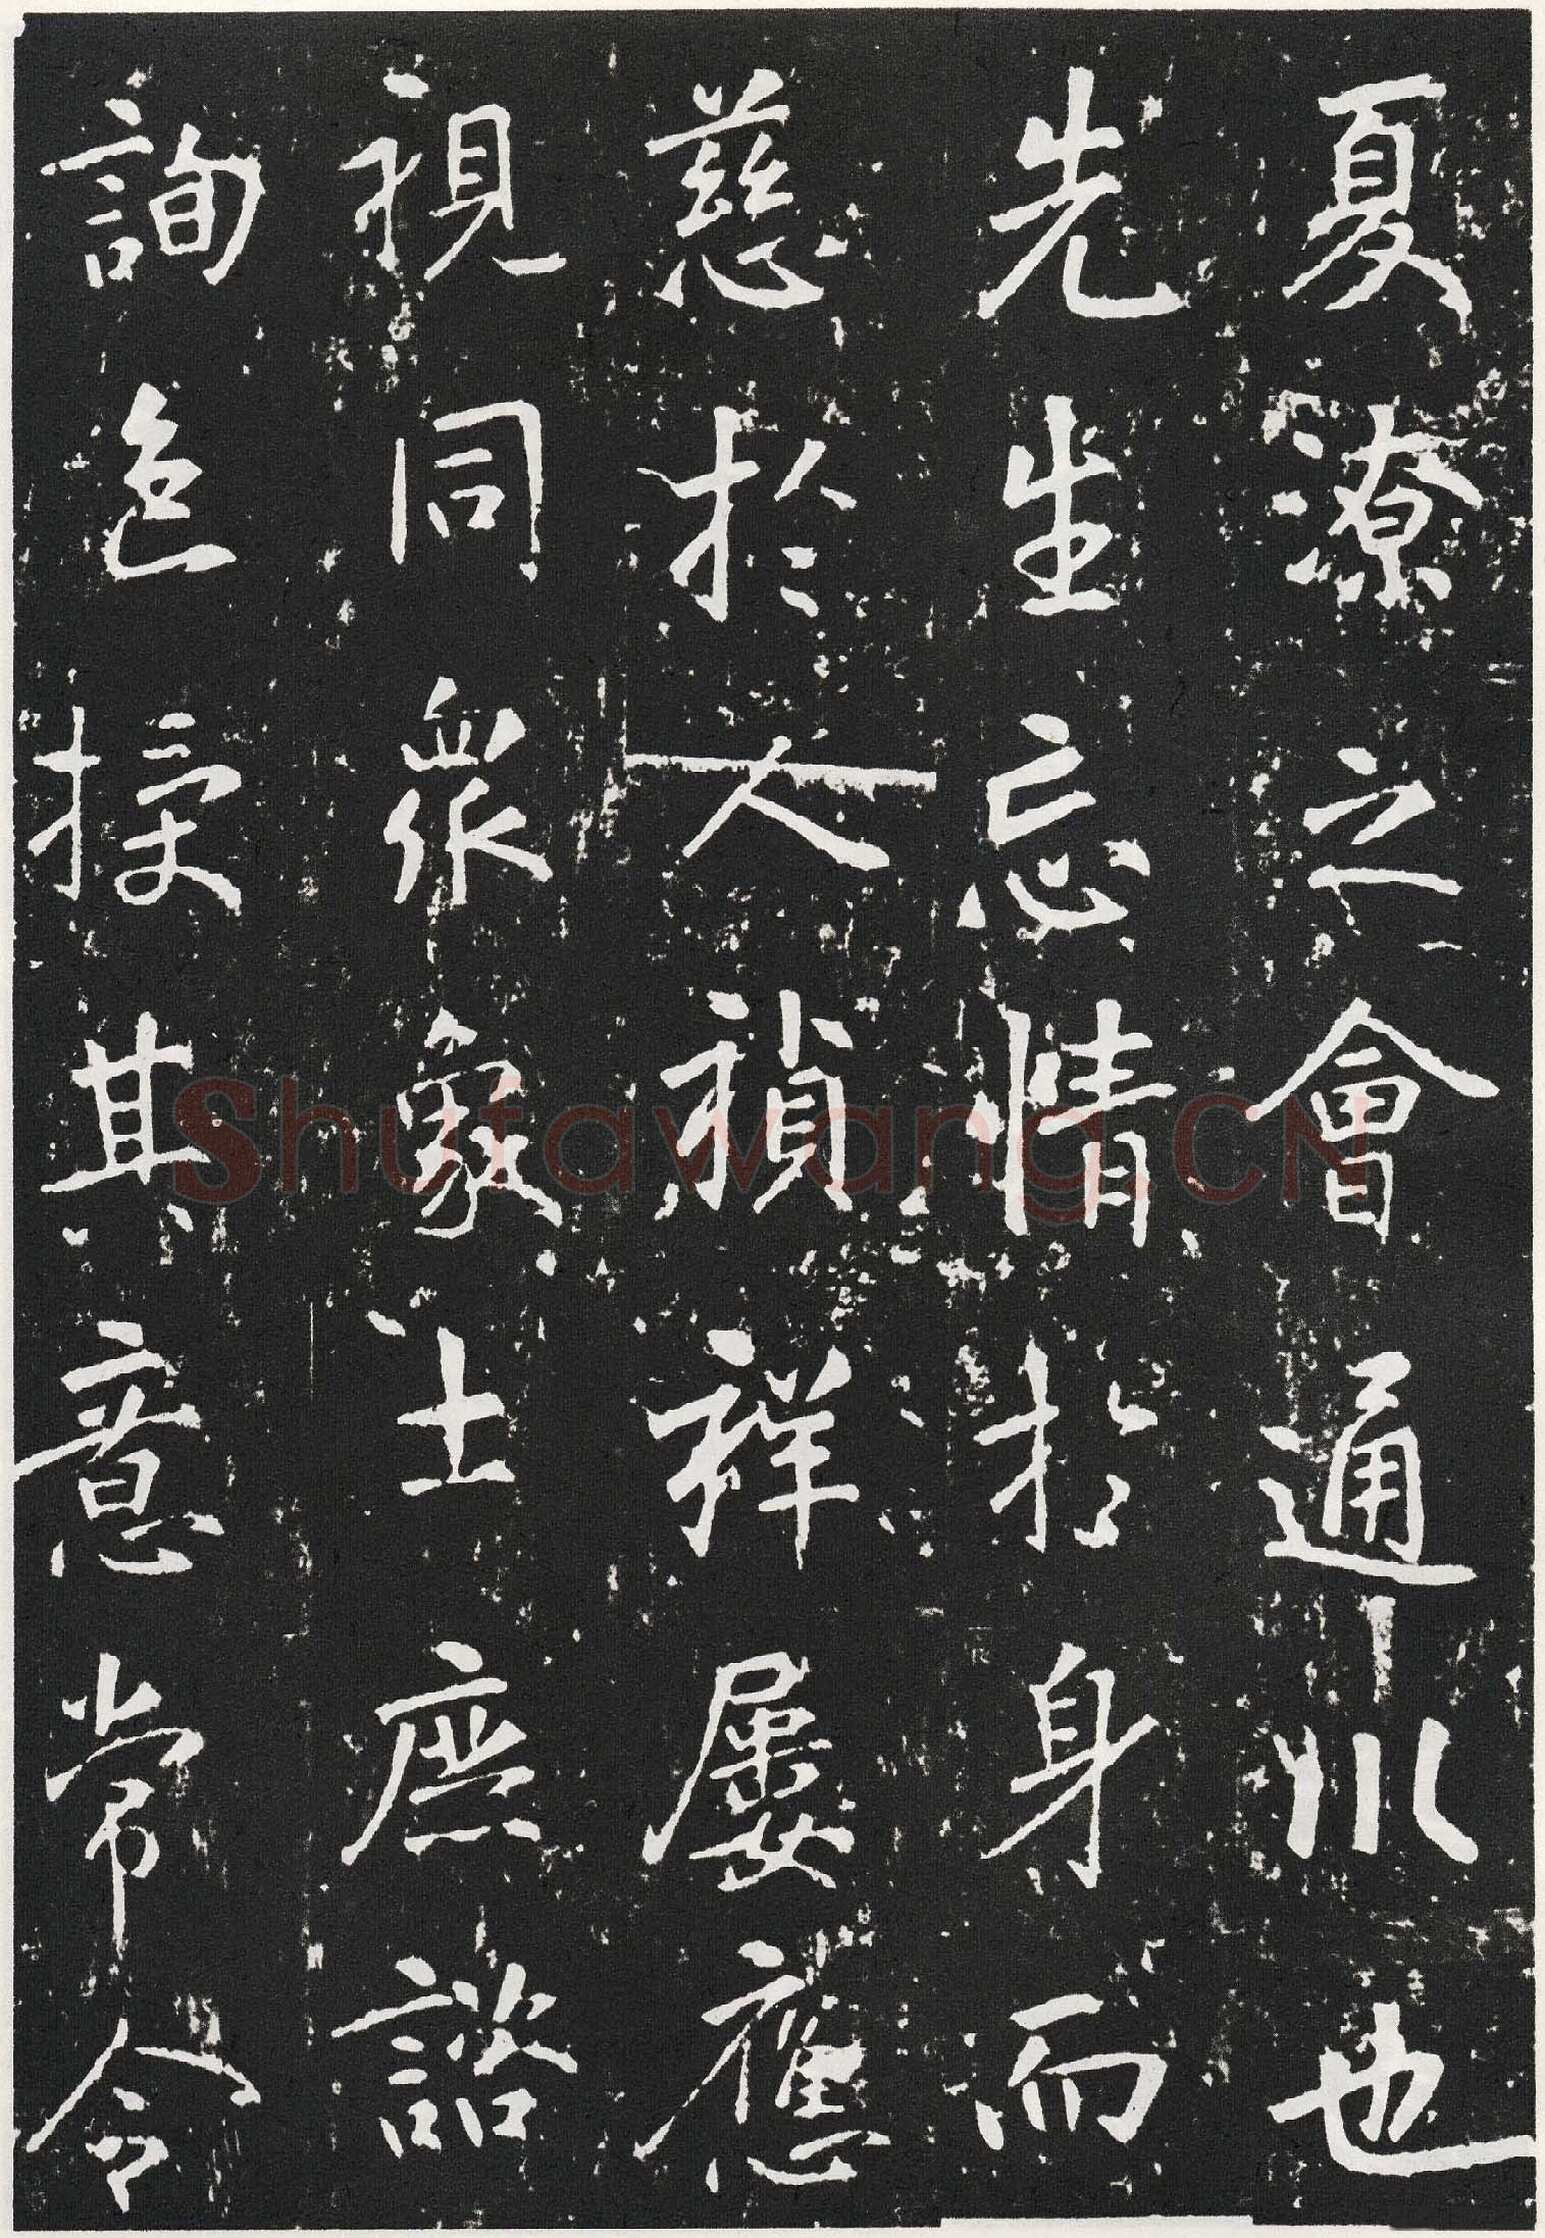 夏潦之會通川也
先生忘情於身而
慈於人禎祥屢應
視同眾象士庶諮
詢色授其意常令
Shufawang.CN